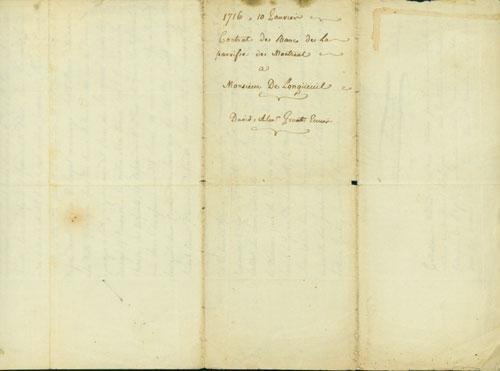 1716 10 Janvier
Contrat de Banc de la
paroisse de Montreal
a
Monsieur De Longueuil
David Alexr Grant Ecuier